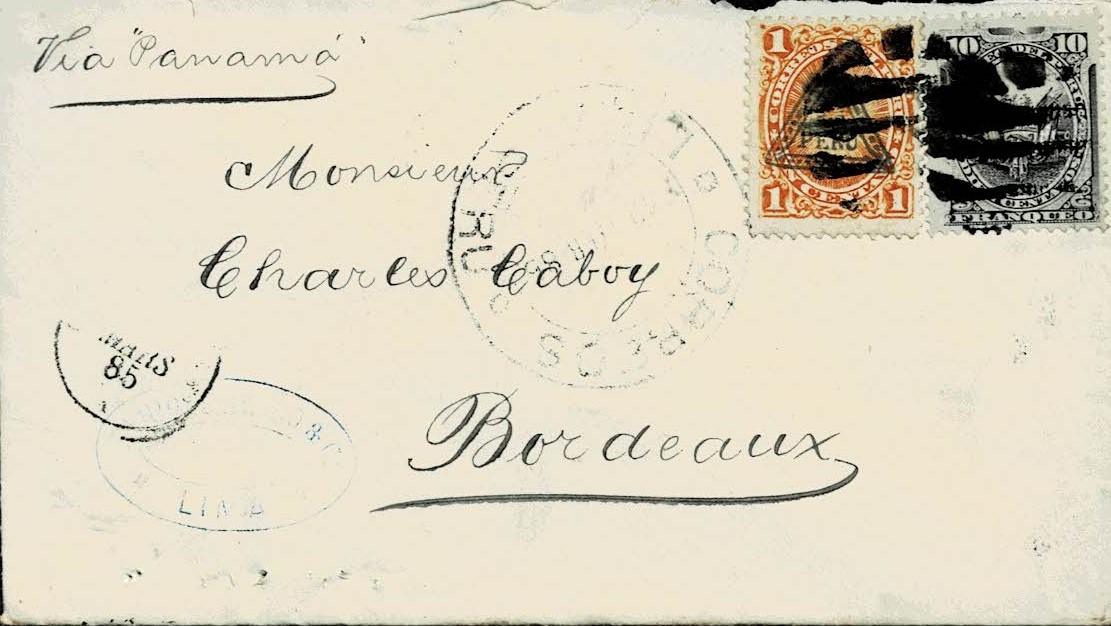 Via "Panamá"
Monsieur
Charles Caboy
Bordeaux
1 1
CORREOS DEL PERU
PERU
UN CENTAVO
1 1
10 10
FRANQUEO
LIMA
CORREOS
PERU
MARS
85
LIMA